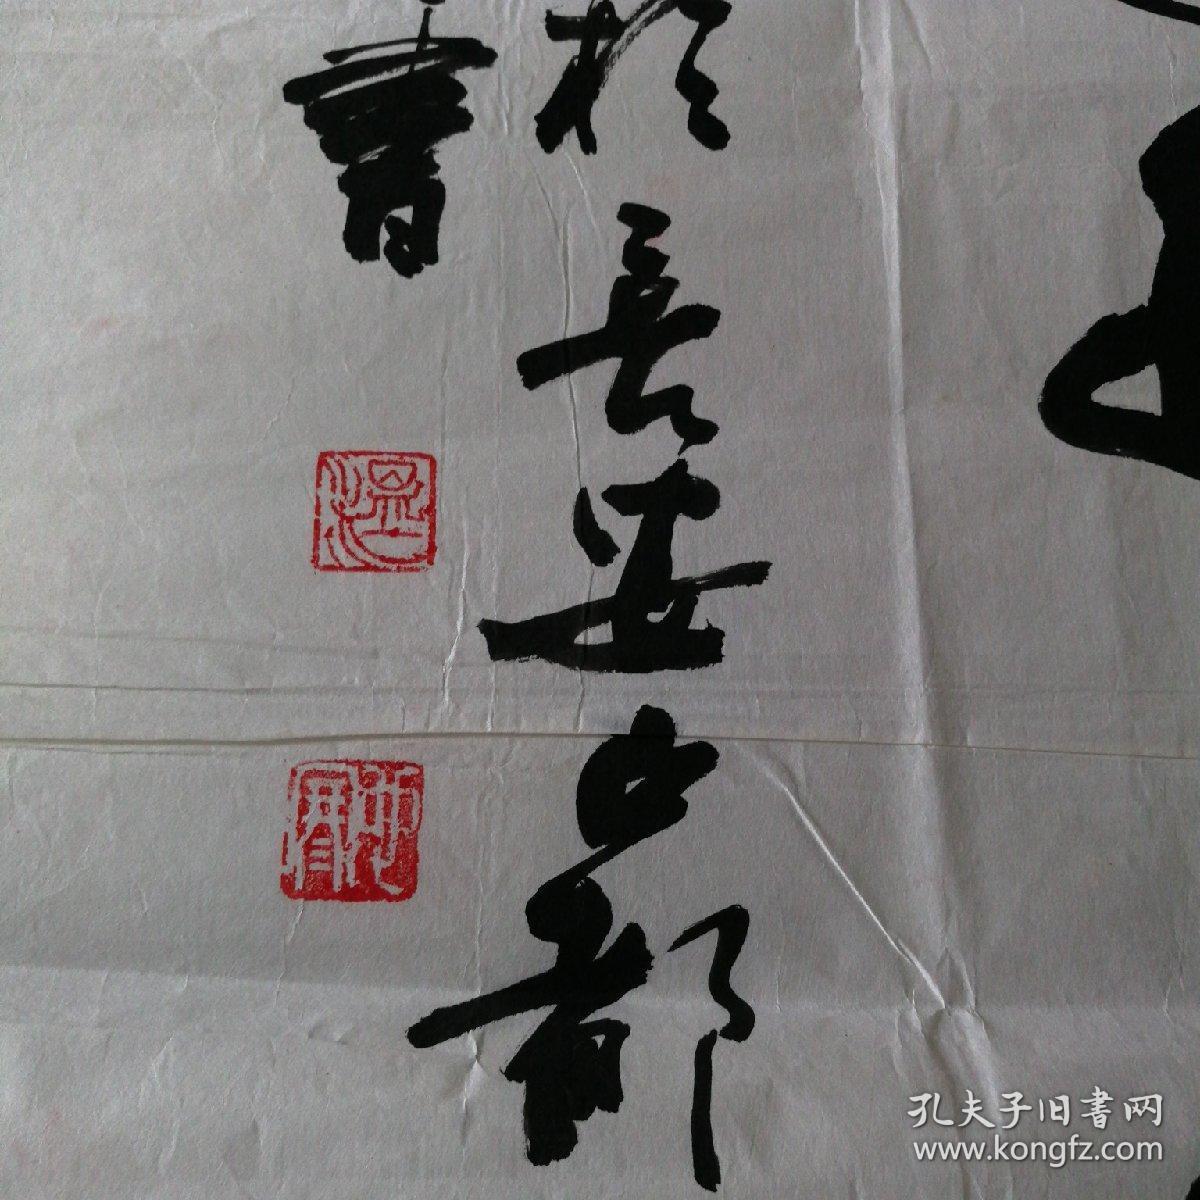 於長安古都
書
温
孔夫子旧书网
www.kongfz.com